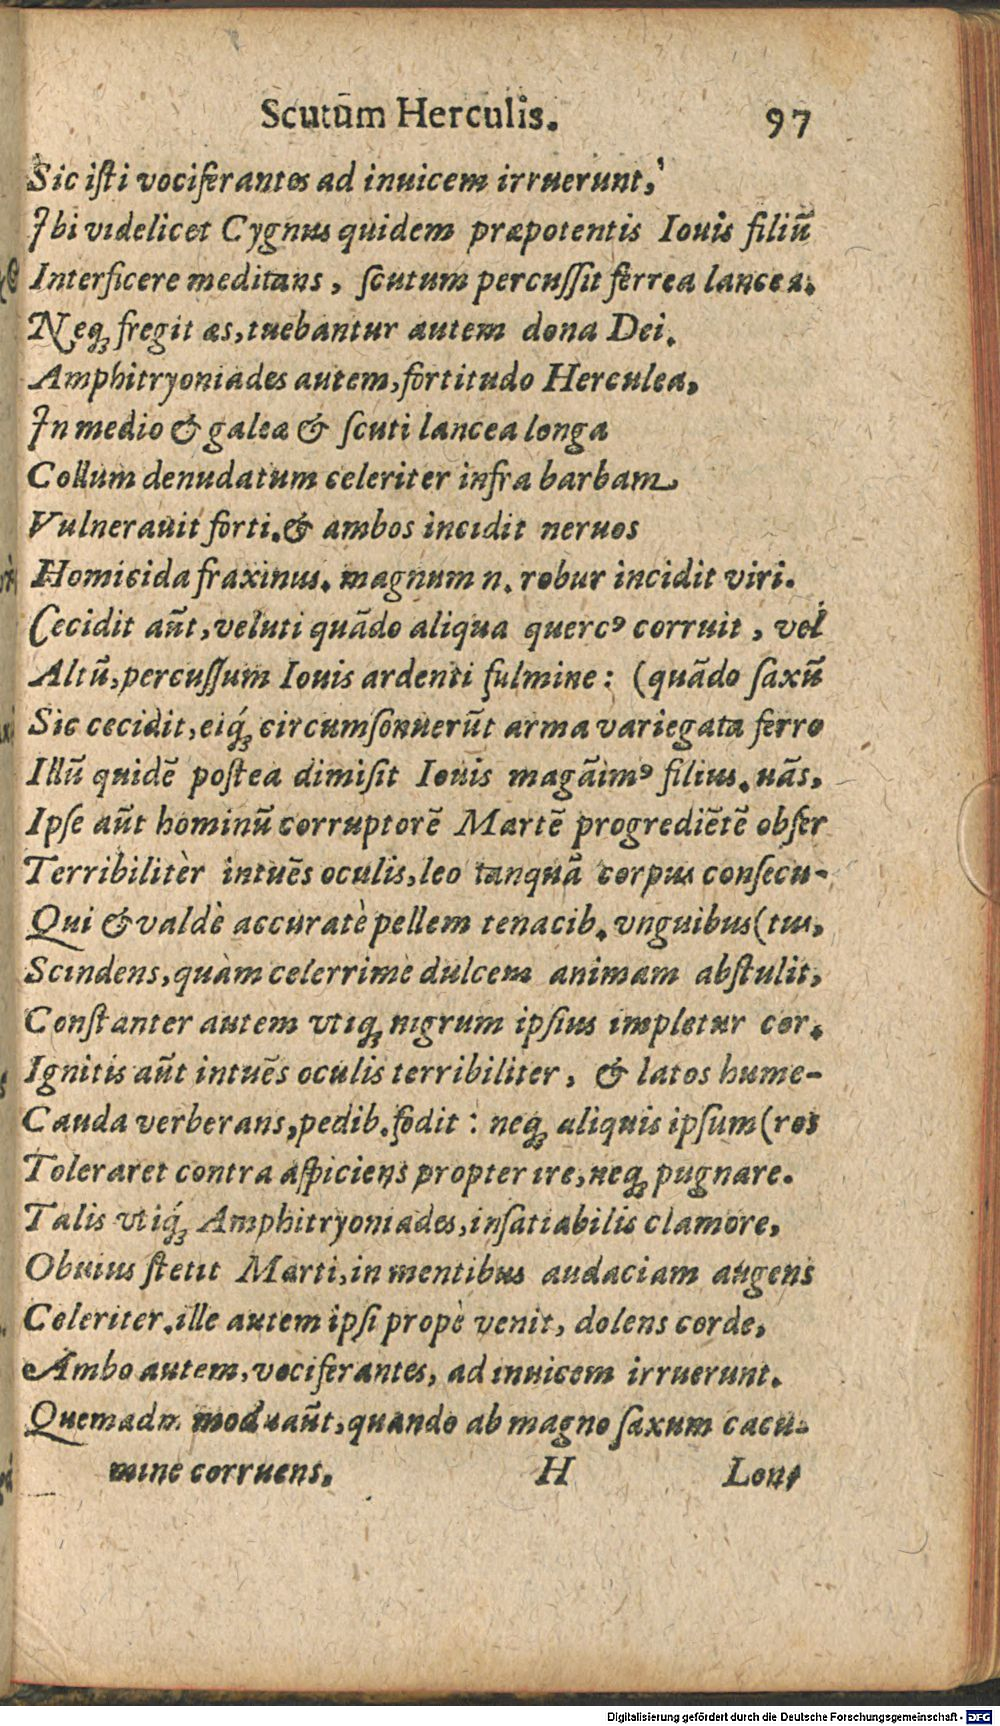 Scutūm Herculis. 97
Sic iſti vociferantes ad inuicem irruerunt,
Ibi videlicet Cygnus quidem præpotentis Iouis filiū
Interficere meditans, ſcutum percuſſit ferrea lancea.
Neqꝫ fregit æs, tuebantur autem dona Dei.
Amphitryoniades autem, fortitudo Herculea,
In medio & galea & ſcuti lancea longa
Collum denudatum celeriter infra barbam
Vulnerauit forti. & ambos incidit neruos
Homicida fraxinus. magnum n. robur incidit viri.
Cecidit aūt, veluti quādo aliqua quercꝰ corruit, vel
Altū, percuſſum Iouis ardenti fulmine: (quādo ſaxū
Sic cecidit, eiq́ꝫ circumſonuerūt arma variegata ferro
Illū quidē poſtea dimiſit Iouis magāimꝰ filius. uās,
Ipſe aūt hominū corruptorē Martē progrediētē obſer
Terribilitèr intuēs oculis, leo tanquā corpus conſecu-
Qui & valdè accuratè pellem tenacib. vnguibus (tus,
Scindens, quàm celerrimè dulcem animam abſtulit,
Conſtanter autem vtiqꝫ nigrum ipſius impletur cor.
Ignitis aūt intuēs oculis terribiliter, & latos hume-
Cauda verberans, pedib. fodit: neqꝫ aliquis ipſum (ros
Toleraret contra aſpiciens propter ire, neqꝫ pugnare.
Talis vtiq́ꝫ Amphitryoniades, inſatiabilis clamore,
Obuius ſtetit Marti, in mentibus audaciam augens
Celeriter. ille autem ipſi propè venit, dolens corde,
Ambo autem, vociferantes, ad inuicem irruerunt.
Quemadm modu aūt, quando ab magno ſaxum cacu-
mine corruens. H Lon
Digitalisierung gefördert durch die Deutsche Forschungsgemeinschaft - DFG